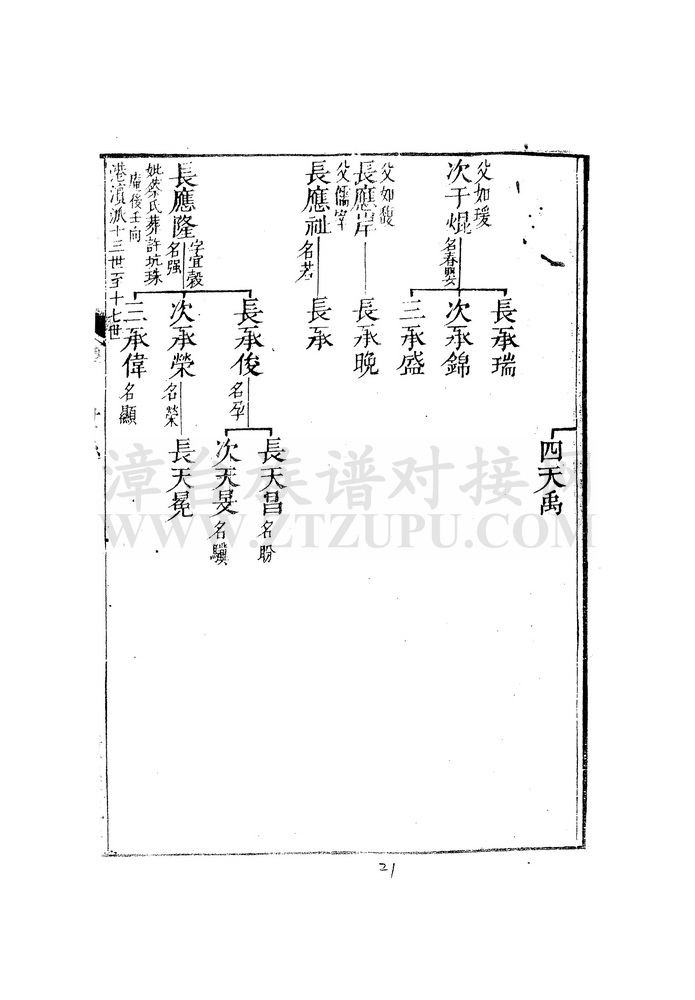 四天禹
父如瑗
次于焜 名春嬰
長承瑞
次承錦
三承盛
父如馥
長應岸
長承晚
父儒宰
長應祉 名若
長承
長應隆 字宜毅 名强
妣蔡氏葬許坑珠
庵後壬向
長承俊 名孕
次承榮 名榮
三承偉 名顯
長天昌 名盼
次天旻 名驥
長天冕
港濱派十三世至十七世
漳台族谱对接网
WWW.ZTZUPU.COM
21